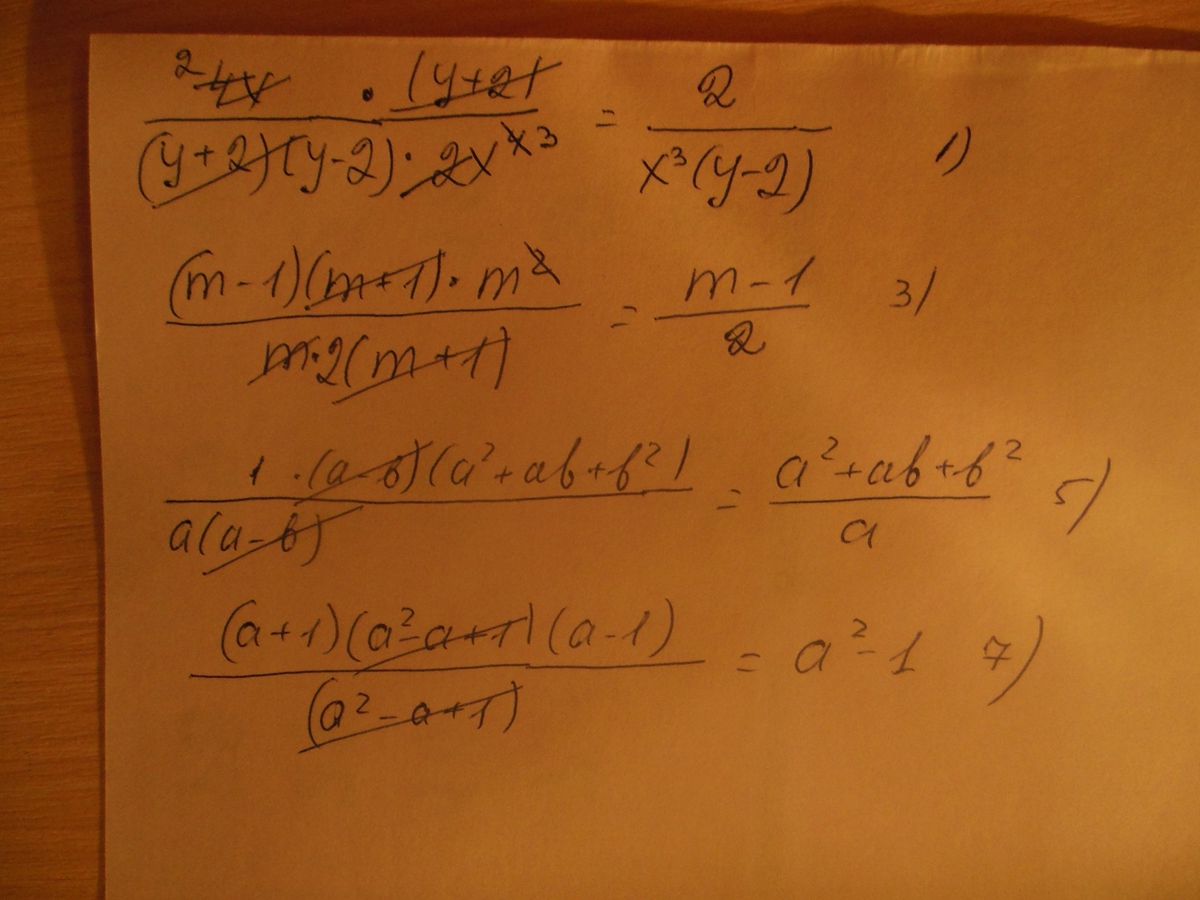 2 4x · (y+2) / (y+2)(y-2) · 2x⁴ ³ = 2 / x³(y-2) 1)
(m-1)(m+1) · m² / m·2(m+1) = m-1 / 2 3)
1 · (a-b)(a²+ab+b²) / a(a-b) = a²+ab+b² / a 5)
(a+1)(a²-a+1)(a-1) / (a²-a+1) = a²-1 7)